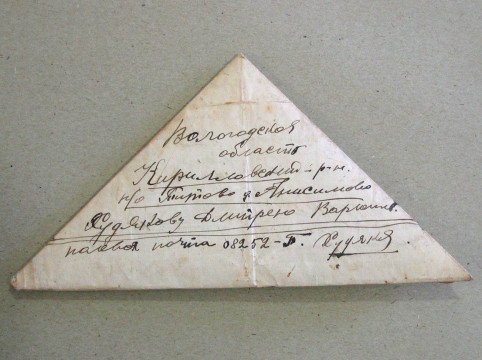 Вологодская
область
Кирилловский р-н.
п/о Титово д Анисимово
Худякову Дмитрею
полевоя почта 08252-Б. Худяков